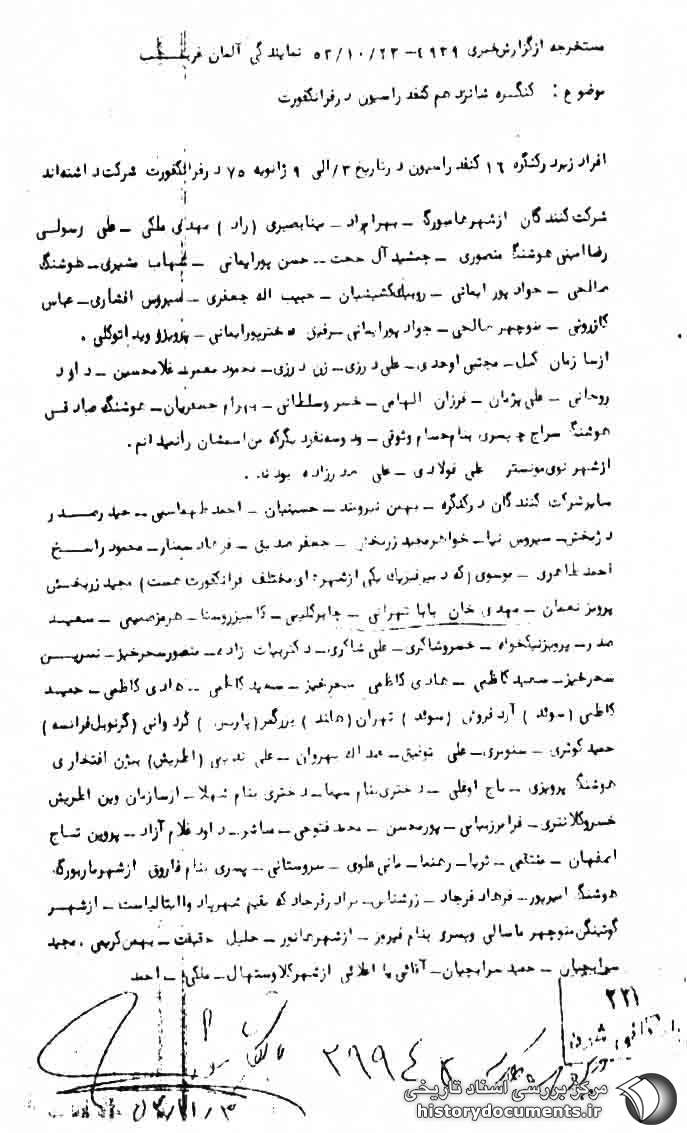 مستخرجه از گزارش خبری ۴۹۳۹ – ۵۳/۱۰/۲۳ نمایندگی آلمان غرب
موضوع : کنگره شانزدهم کنفدراسیون در فرانکفورت
افراد زیر در کنگره ۱۶ کنفدراسیون در تاریخ ۳/ الی ۹ ژانویه ۷۵ در فرانکفورت شرکت داشته‌اند
شرکت کنندگان از شهر هامبورگ – بهرام راد – مینا بصیری (راد) مهدی ملکی – علی رسولی
رضا امینی هوشنگ منصوری – جمشید آل حجت – حسن پورایمانی – شهاب مشیری – هوشنگ
صالحی – جواد پورایمانی – روبیک کشیشیان – حبیب اله جعفری – سیروس افشاری – عباس
کازرونی – منوچهر صالحی – جواد پورایمانی – دختر پورایمانی – پرویز و یدا توکلی .
از سازمان کیل – مجتبی اوحدی – علی درزی – زن درزی – محمود معروف غلامحسین – داود
روحانی – علی پژمان – فرزان الهامی – خسرو سلطانی – بهرام جعفریان – هوشنگ صادقی
هوشنگ سراج و پسری بنام حسام وثوقی – و دو سه نفر دیگر که من اسمشان را نمیدانم .
از شهر نوی مونستر علی فولادی – علی صدرزاده بودند .
سایر شرکت کنندگان در کنگره – بهمن نیرومند – حسینیان – احمد طهماسبی – حمید
زربخش – سیروس نیا – خواهر مجید زربخش – جعفر صدیق – فرهاد سمنار – محمود راسخ
احمد طاهری – موسوی (که دبیر فیزیک یکی از شهرهای مختلف فرانکفورت هست) مجید زربخش
پرویز نعمان – مهدی خان بابا تهرانی – جابر کلیبی – کامبیز روستا – هرمز صمیمی – سعید
صدر – پرویز نیکخواه – خسرو شاکری – علی شاکری – دکتر بیات زاده – منصور سحرخیز – نسرین
سحرخیز – سعید کاظمی – هادی کاظمی سحرخیز – سعید کاظمی – هادی کاظمی – حمید
کاظمی (سوئد) آرد فروش (سوئد) تهران (هلند) بزرگمهر (پاریس) گردوانی (گرنوبل فرانسه)
حمید کوثری – منوچهری – علی توفیق – عبداله بهروان – علی ندیمی (اطریش) بیژن افتخاری
هوشنگ پرویزی – تاج اوغلی – دختری بنام سیما – دختری بنام شهلا – از سازمان وین اطریش
خسرو کلانتری – فرامرز بیانی – پورمحسن – محمد فتوحی – مباشر – داود غلام آزاد – پروین تاج
اصفهان – مفتاحی – ثریا – رهنما – مانی علوی – سروستانی – پسری بنام فاروق از شهر ماربورگ
هوشنگ امیرپور – فرهاد فرجاد – زرشناس – برادر فرجاد که مقیم شهر پادوا ایتالیاست – از شهر
گوتینگن منوچهر ماسالی و پسری بنام فیروز – از شهر هانور – خلیل حقیقت – بهمن کریمی . مجید
سرابچیان – حمید سرابچیان – آقائی با اطلائی از شهر کلاوستهال – ملکی – احمد
۲۲۱
۲۹۹۴۸
مرکز بررسی اسناد تاریخی
historydocuments.ir